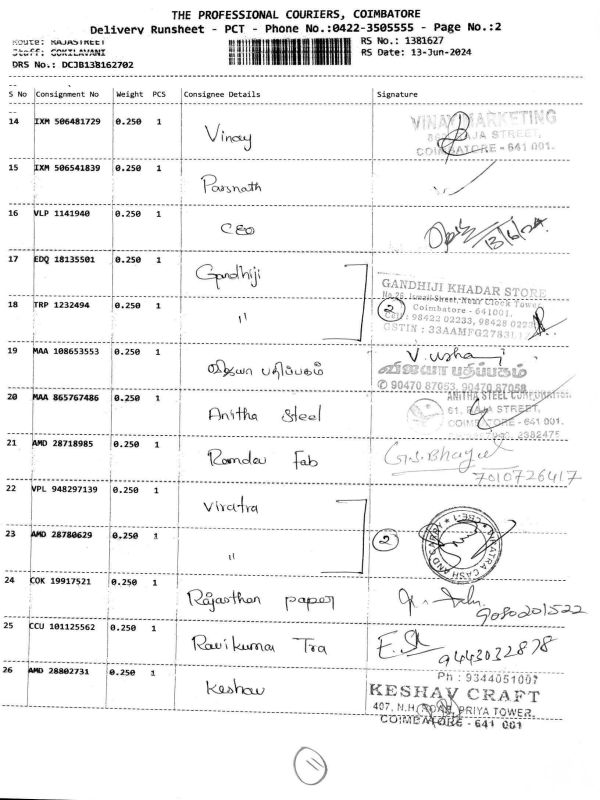 THE PROFESSIONAL COURIERS, COIMBATORE
Delivery Runsheet - PCT - Phone No.:0422-3505555 - Page No.:2
Route: RAJASTREET
Staff: GOKILAVANI
DRS No.: DCJB138162702
RS No.: 1381627
RS Date: 13-Jun-2024
S No Consignment No Weight PCS Consignee Details Signature
14 IXM 506481729 0.250 1 Vinay
VINAY MARKETING
RAJA STREET,
COIMBATORE - 641 001.
15 IXM 506541839 0.250 1 Parsnath
16 VLP 1141940 0.250 1 CEO
13/6/24
17 EDQ 18135501 0.250 1 Gandhiji
GANDHIJI KHADAR STORE
No.26, Ismail Street, Near Clock Tower
Coimbatore - 641001.
Cell : 98422 02233, 98428 0223
GSTIN : 33AAMFG2783L1
18 TRP 1232494 0.250 1 "
2
19 MAA 108653553 0.250 1 விஜயா பதிப்பகம்
V. usha
விஜயா பதிப்பகம்
✆ 90470 87053, 90470 87058
20 MAA 865767486 0.250 1 Anitha Steel
ANITHA STEEL CORPORATION
61, RAJA STREET,
COIMBATORE - 641 001.
2382475
21 AMD 28718985 0.250 1 Ramdev Fab
G.S. Bhagul
7010726417
22 VPL 948297139 0.250 1 Viratra
23 AMD 28780629 0.250 1 "
2
VIRATRA CASH AND CARRY
CBE-1
24 COK 19917521 0.250 1 Rajasthan paper
9080201522
25 CCU 101125562 0.250 1 Ravikumar Tra
9443032878
26 AMD 28802731 0.250 1 Keshav
Ph : 9344051007
KESHAV CRAFT
407, N.H. ROAD, PRIYA TOWER,
COIMBATORE - 641 001
11